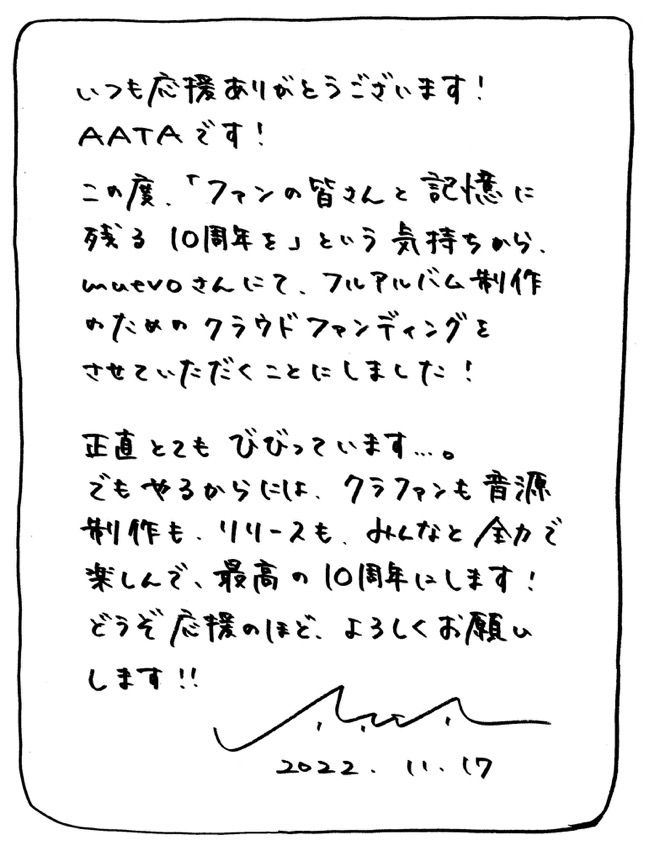 いつも応援ありがとうございます!
AATAです!
この度、「ファンの皆さんと記憶に
残る10周年を」という気持ちから、
muevoさんにて、フルアルバム制作
のためのクラウドファンディングを
させていただくことにしました!
正直とてもびびっています…。
でもやるからには、クラファンも音源
制作も、リリースも、みんなと全力で
楽しんで、最高の10周年にします!
どうぞ応援のほど、よろしくお願い
します!!
2022.11.17